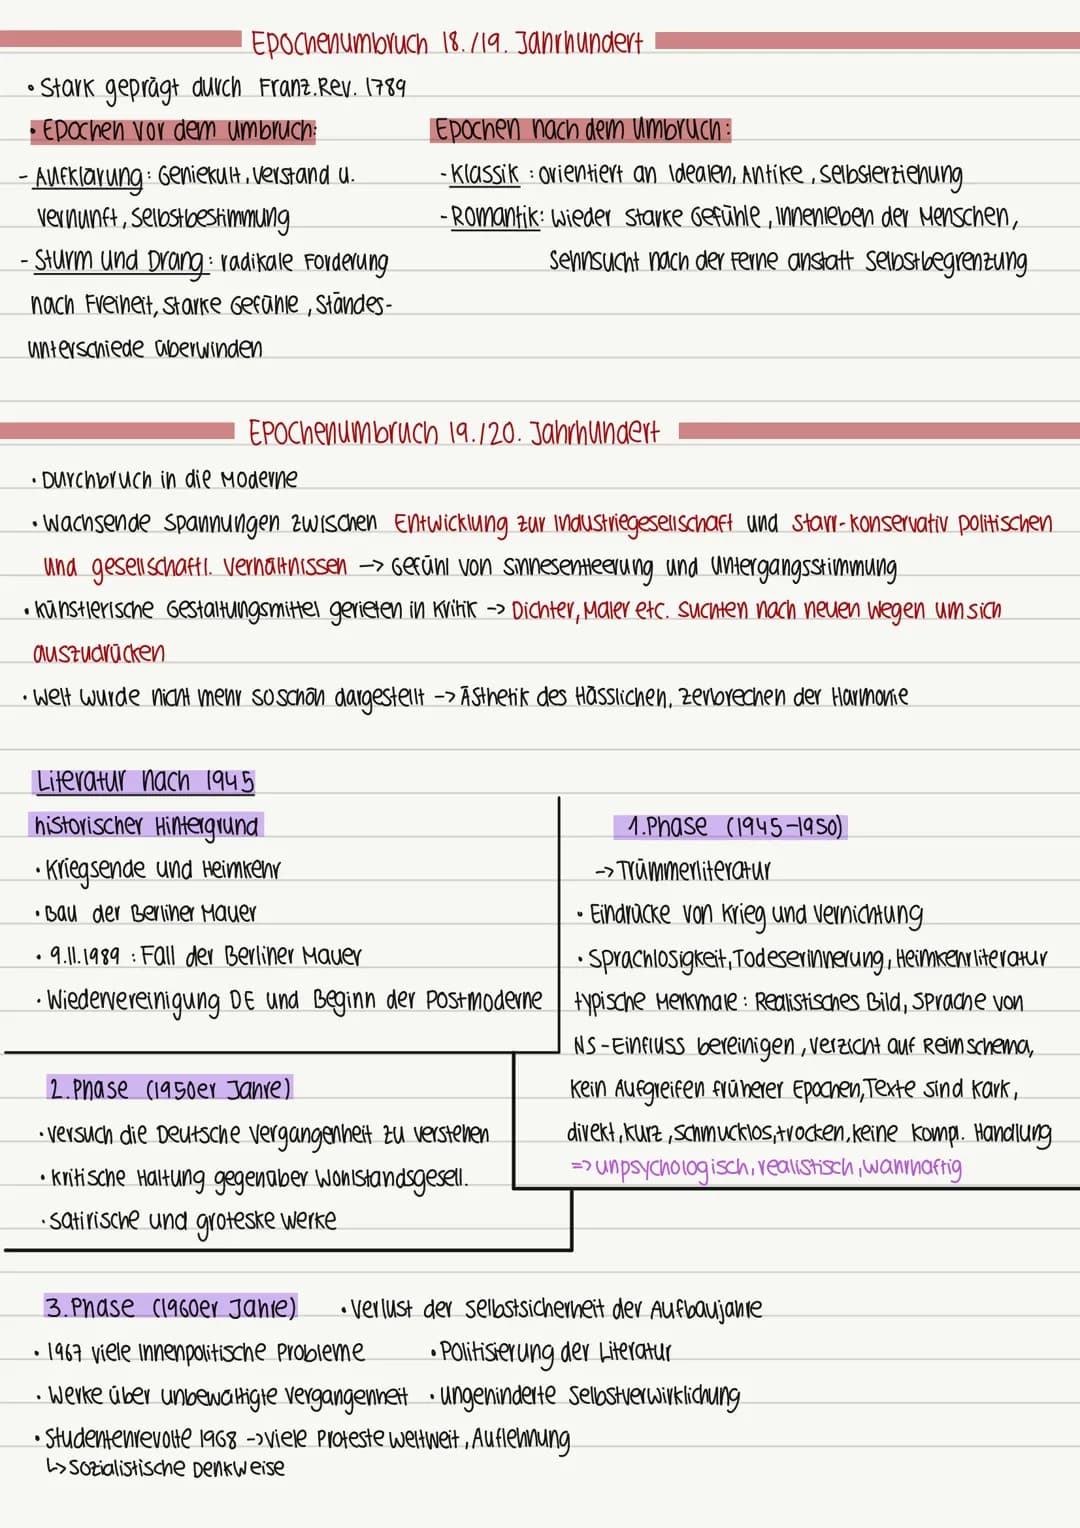 Epochenumbruch 18./19. Jahrhundert
• Stark geprägt durch Franz.Rev. 1789
• Epochen vor dem Umbruch:
- Aufklärung: Geniekult, Verstand u.
Vernunft, Selbstbestimmung
- Sturm und Drang: radikale Forderung
nach Freiheit, starke Gefühle, Standes-
unterschiede überwinden
Epochen nach dem Umbruch:
- Klassik: orientiert an Idealen, Antike, Selbsterziehung
- Romantik: Wieder starke Gefühle, Innenleben der Menschen,
Sehnsucht nach der Ferne anstatt Selbstbegrenzung
Epochenumbruch 19./20. Jahrhundert
• Durchbruch in die Moderne
• Wachsende Spannungen zwischen Entwicklung zur Industriegesellschaft und starr-konservativ politischen
und gesellschaftl. Verhältnissen -> Gefühl von Sinnesentleerung und Untergangsstimmung
• künstlerische Gestaltungsmittel gerieten in Kritik -> Dichter, Maler etc. suchten nach neuen Wegen um sich
auszudrücken
• Welt wurde nicht mehr so schön dargestellt -> Ästhetik des Hässlichen, zerbrechen der Harmonie
Literatur nach 1945
historischer Hintergrund
• Kriegsende und Heimkehr
• Bau der Berliner Mauer
• 9.11.1989: Fall der Berliner Mauer
• Wiedervereinigung DE und Beginn der Postmoderne
1.Phase (1945-1950)
-> Trümmerliteratur
• Eindrücke von Krieg und Vernichtung
• Sprachlosigkeit, Todeserinnerung, Heimkehrliteratur
typische Merkmale: Realistisches Bild, Sprache von
NS-Einfluss bereinigen, Verzicht auf Reimschema,
Kein Aufgreifen früherer Epochen, Texte sind kark,
direkt, kurz, schmucklos, trocken, keine kompl. Handlung
=> unpsychologisch, realistisch, wahrhaftig
2.Phase (1950er Jahre)
• Versuch die Deutsche Vergangenheit zu verstehen
• kritische Haltung gegenüber Wohlstandsgesell.
• satirische und groteske Werke
3.Phase (1960er Jahre)
• 1967 viele Innenpolitische Probleme
• Werke über unbewältigte Vergangenheit
• Studentenrevolte 1968 -> viele Proteste weltweit, Auflehnung
↳ Sozialistische Denkweise
• Verlust der Selbstsicherheit der Aufbaujahre
• Politisierung der Literatur
• ungehinderte Selbstverwirklichung